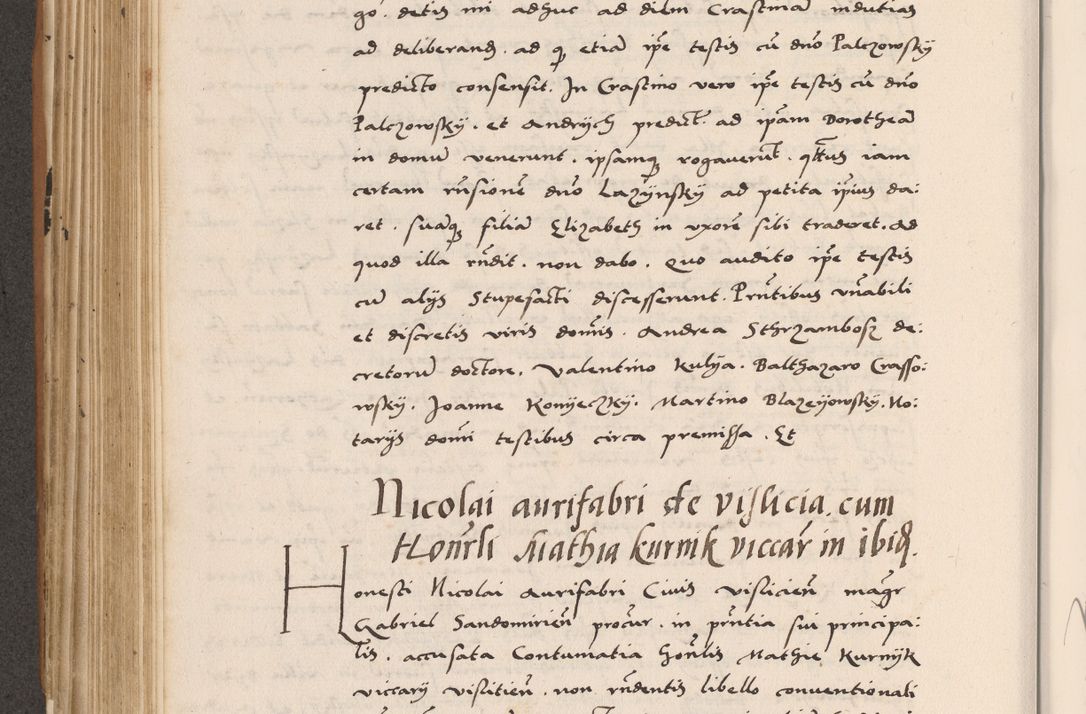 go. detis mi adhuc ad diem Crastinam inducias
ad deliberand. ad q etiam ipe testis cu dno Palczowsky
predicto consensit. In Crastino vero ipe testis cu dno
Palczowsky. et Andrych predict. ad ipam Dorotheam
in domum venerunt. ipsamq rogaverut. qtus iam
certam rnsionem dno Lazynsky ad petita ipius da:
ret. suamq filiam Elizabeth in uxorem sibi traderet. Ad
quod illa rndit. non dabo. Quo audito ipe testis
cum alijs Stupefacti discesserunt. Pntibus vnabili
et discretis viris domis. Andrea Sthrzambosz de:
cretorum doctore. Valentino Kulya. Balthazaro Crasso:
wsky. Joanne Konyeczky. Martino Blazeyowsky. No:
tarijs domi testibus circa premissa. Et
Nicolai aurifabri de vislicia. cum
Honrli Mathia kurnik viccar in ibid.
Honesti Nicolai Aurifabri Civis vislicien magr
Gabriel Sandomirien procur. in pntia sui principa:
lis. accusata Contumatia honlis Mathie Kurnyk
viccarij vislitien. non rndentis libello conventionali